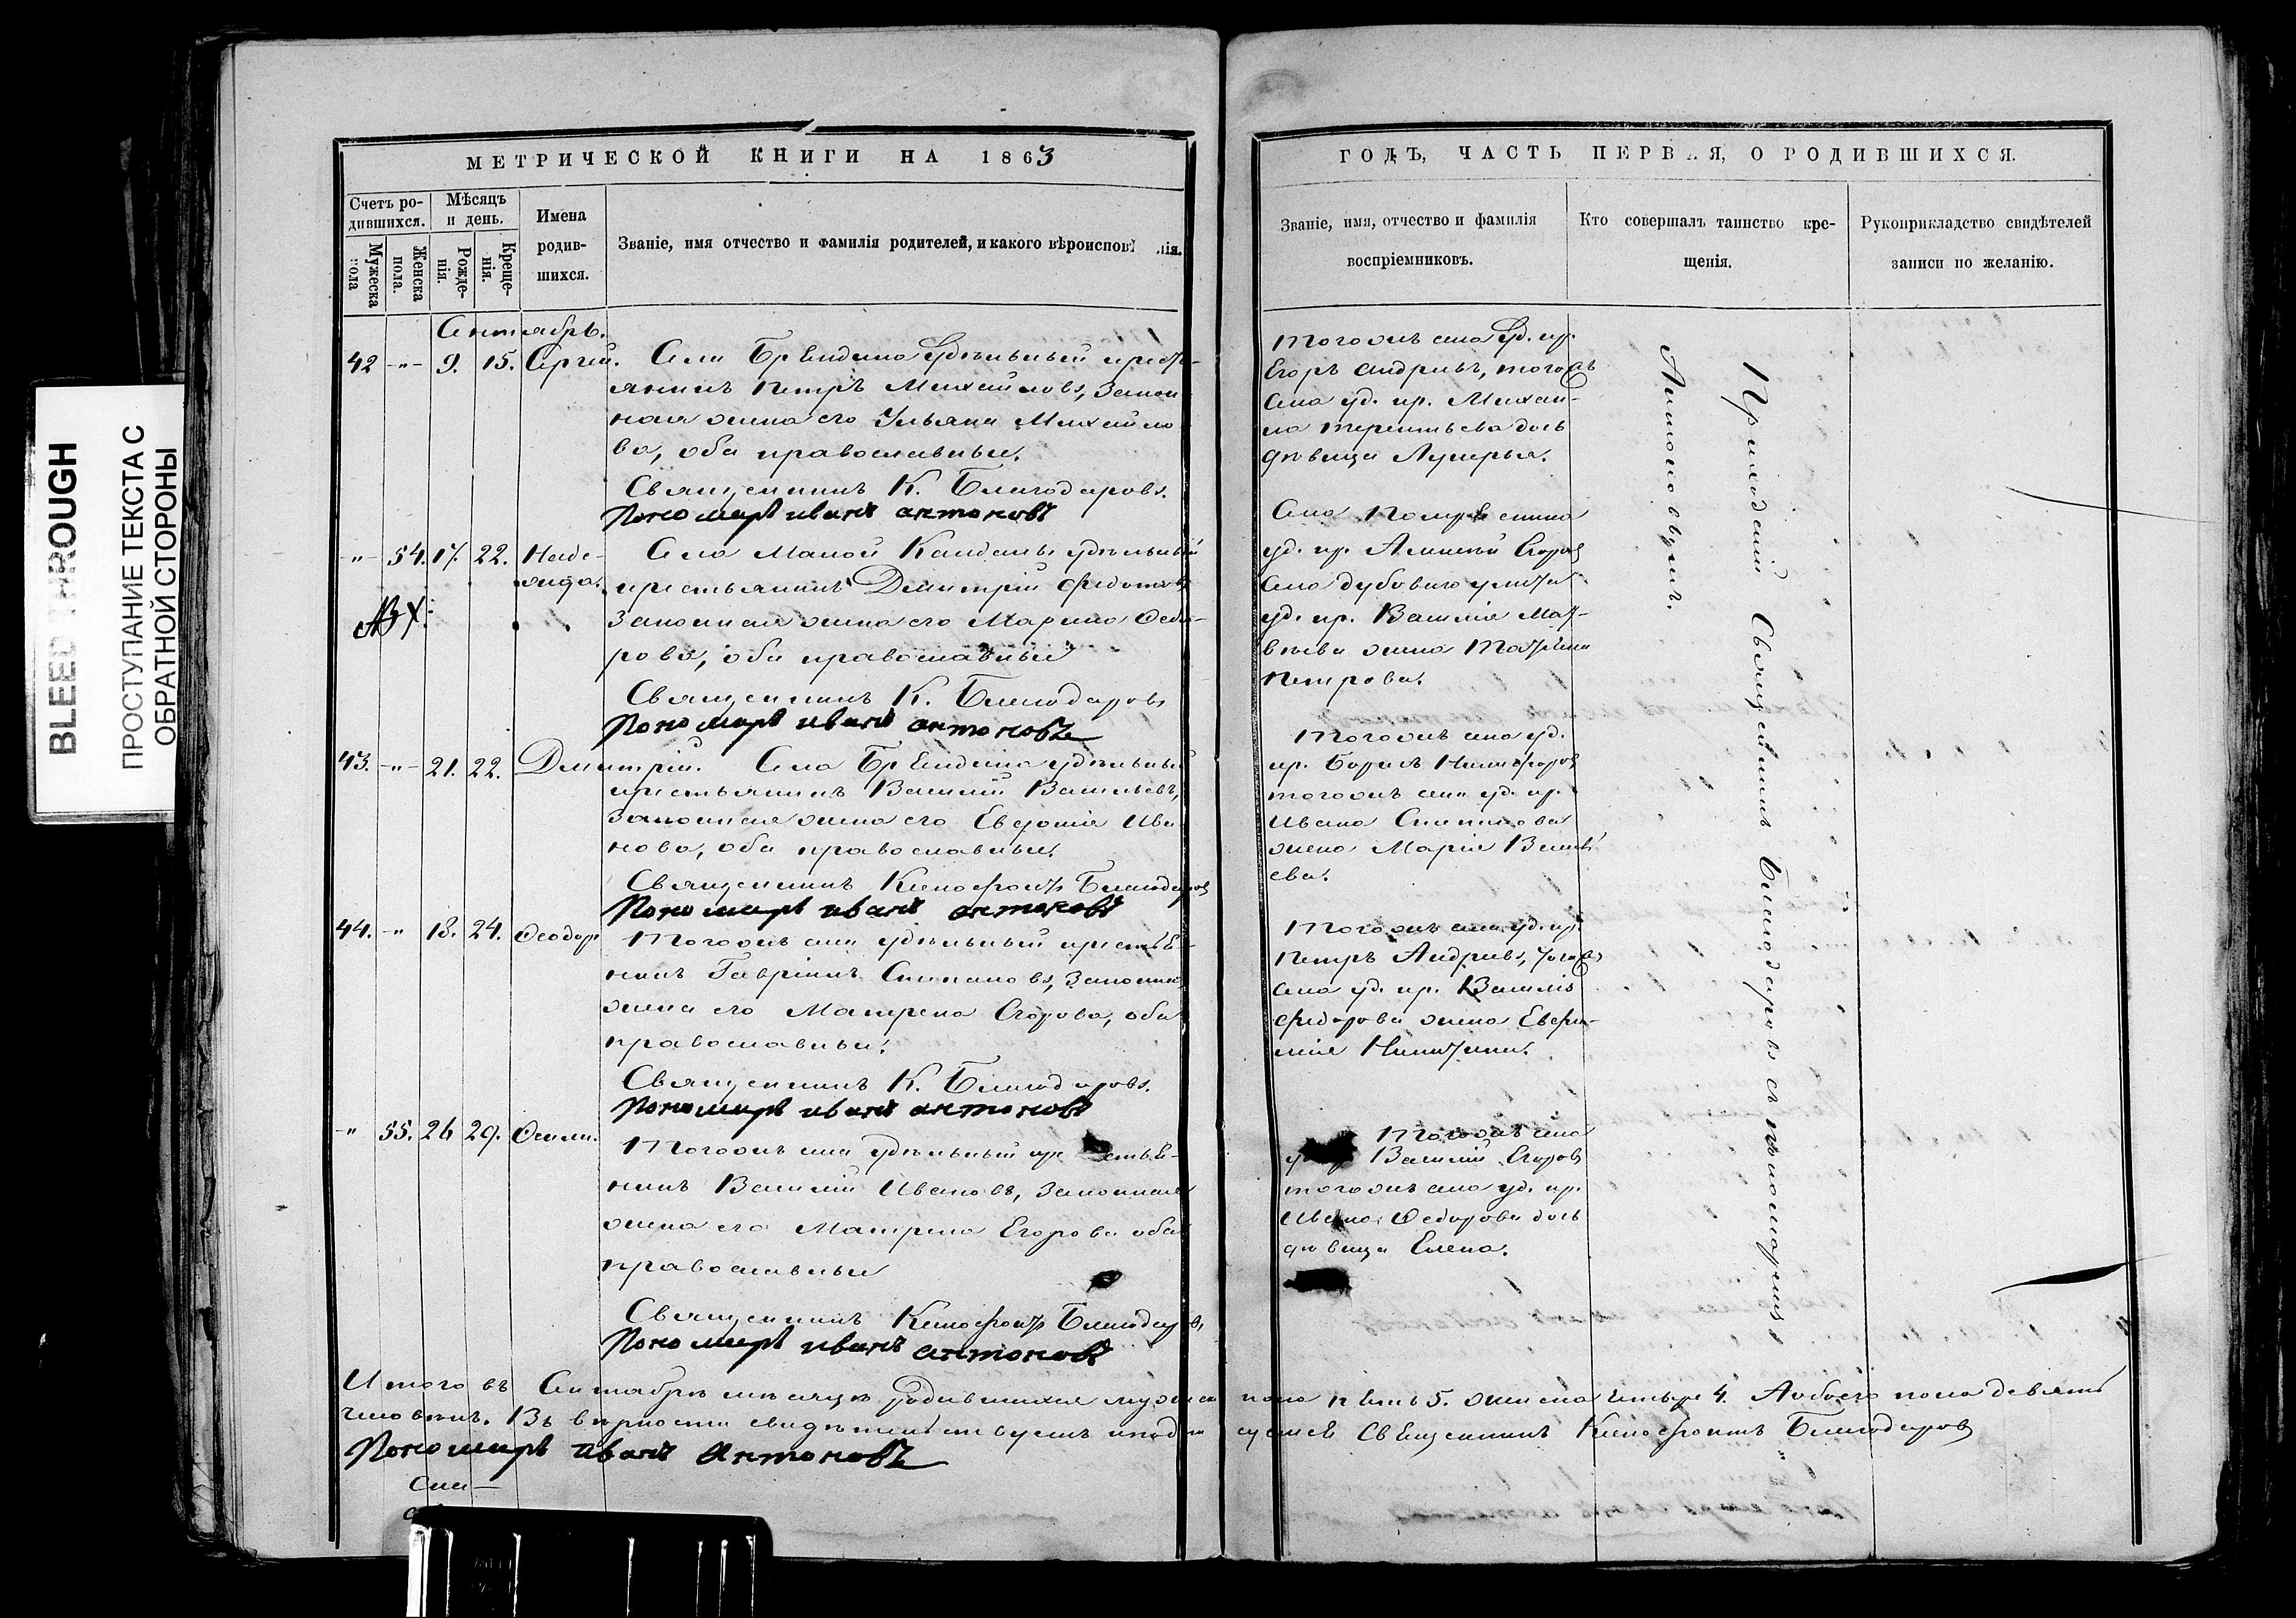 BLEED THROUGH
ПРОСТУПАНИЕ ТЕКСТА С
ОБРАТНОЙ СТОРОНЫ
МЕТРИЧЕСКОЙ КНИГИ НА 1863
Счетъ ро-
дившихся.
Мужеска
пола
Женска
пола.
Мѣсяцъ
и день.
Рожде-
нія.
Креще-
нія.
Имена
родив-
шихся.
Званіе, имя отчество и фамилія родителей, и какого вѣроиспов нія.
Сентябрь.
42 -"- 9. 15. Сергій. Села удѣльный крест-
янинъ Петръ Михайловъ, Закон
ная жена его Ульяна Михайло
ва, оба православные.
Священникъ К. Благодаровъ.
Пономарь иванъ антоновъ
-"- 54. 17. 22. Наде-
жда.
Села Малой удѣльный
крестьянинъ Димитрій Федотовъ
Законная жена его Марина Ѳедо-
рова, оба православные
Священникъ К. Благодаровъ
Пономарь иванъ антоновъ
43. -"- 21. 22. Димитрій. Села удѣльный
крестьянинъ Василій Васильевъ,
Законная жена его Ива
нова, оба православные.
Священникъ Ксенофонтъ Благодаровъ
Пономарь иванъ антоновъ
44. -" 18. 24. Ѳеодоръ Тогожъ села удѣльный крестья-
нинъ Гавріилъ Степановъ, Законная
жена его Матрена Егорова, оба
православные.
Священникъ К. Благодаровъ.
Пономарь иванъ антоновъ
-" 55. 26 29.
Тогожъ села удѣльный кр стья-
нинъ Василій Ивановъ, Законная
жена его Матрена Егорова оба
православные
Священникъ Ксенофонтъ Благодаровъ
Пономарь иванъ антоновъ
ГОДЪ, ЧАСТЬ ПЕРВАЯ, О РОДИВШИХСЯ.
Званіе, имя, отчество и фамилія
воспріемниковъ.
Кто совершалъ таинство кре-
щенія.
Рукоприкладство свидѣтелей
записи по желанію.
Тогожъ села Уд. кр.
Егоръ Андреевъ, тогожъ
села уд. кр. Михаи-
ла Терентьева дочь
дѣвица Лукерья.
Села
уд. кр. Алексѣй Егоровъ
Села
уд. кр. Василія Мат-
вѣева жена Татіана
Петрова.
Тогожъ села уд.
кр. Борисъ Никифоровъ
тогожъ села уд. кр.
Ивана Степанова
жена Марія Василь
ева.
Тогожъ села уд. кр.
Петръ Андреевъ, тогожъ
села уд. кр. Василія
Федорова жена Евфи-
мія Никитина.
Тогожъ села
Василій Егоровъ
тогожъ села уд. кр.
Ивана Ѳедорова дочь
дѣвица Елена.
Приходскій Священникъ Благодаровъ съ пономаремъ
Антоновымъ.
Итого въ Сентябрѣ мѣсяцѣ родившихся мужеска пола пять 5. женска четыре 4. Аобоего пола девять
человѣкъ. Въ вѣрности свидѣтельствуемъ и подписуемся Священникъ Ксенофонтъ Благодаровъ
Пономарь иванъ Антоновъ